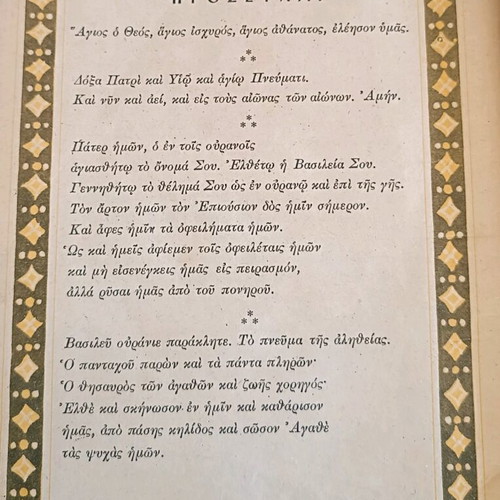 Ἅγιος ὁ Θεός, ἅγιος ἰσχυρός, ἅγιος ἀθάνατος, ἐλέησον ὑμᾶς.
***
Δόξα Πατρὶ καὶ Υἱῷ καὶ ἁγίῳ Πνεύματι.
Καὶ νῦν καὶ ἀεί, καὶ εἰς τοὺς αἰῶνας τῶν αἰώνων. Ἀμήν.
***
Πάτερ ἡμῶν, ὁ ἐν τοῖς οὐρανοῖς
ἁγιασθήτω τὸ ὄνομά Σου. Ἐλθέτω ἡ Βασιλεία Σου.
Γεννηθήτω τὸ θέλημά Σου ὡς ἐν οὐρανῷ καὶ ἐπὶ τῆς γῆς.
Τὸν ἄρτον ἡμῶν τὸν Ἐπιούσιον δὸς ἡμῖν σήμερον.
Καὶ ἄφες ἡμῖν τὰ ὀφειλήματα ἡμῶν.
Ὡς καὶ ἡμεῖς ἀφίεμεν τοῖς ὀφειλέταις ἡμῶν
καὶ μὴ εἰσενέγκεις ἡμᾶς εἰς πειρασμόν,
ἀλλά ρῦσαι ἡμᾶς ἀπὸ τοῦ πονηροῦ.
***
Βασιλεῦ οὐράνιε παράκλητε. Τὸ πνεῦμα τῆς ἀληθείας.
Ὁ πανταχοῦ παρὼν καὶ τὰ πάντα πληρῶν·
Ὁ θησαυρὸς τῶν ἀγαθῶν καὶ ζωῆς χορηγός·
Ἐλθὲ καὶ σκήνωσον ἐν ἡμῖν καὶ καθάρισον
ἡμᾶς, ἀπὸ πάσης κηλίδος καὶ σῶσον Ἀγαθὲ
τὰς ψυχὰς ἡμῶν.